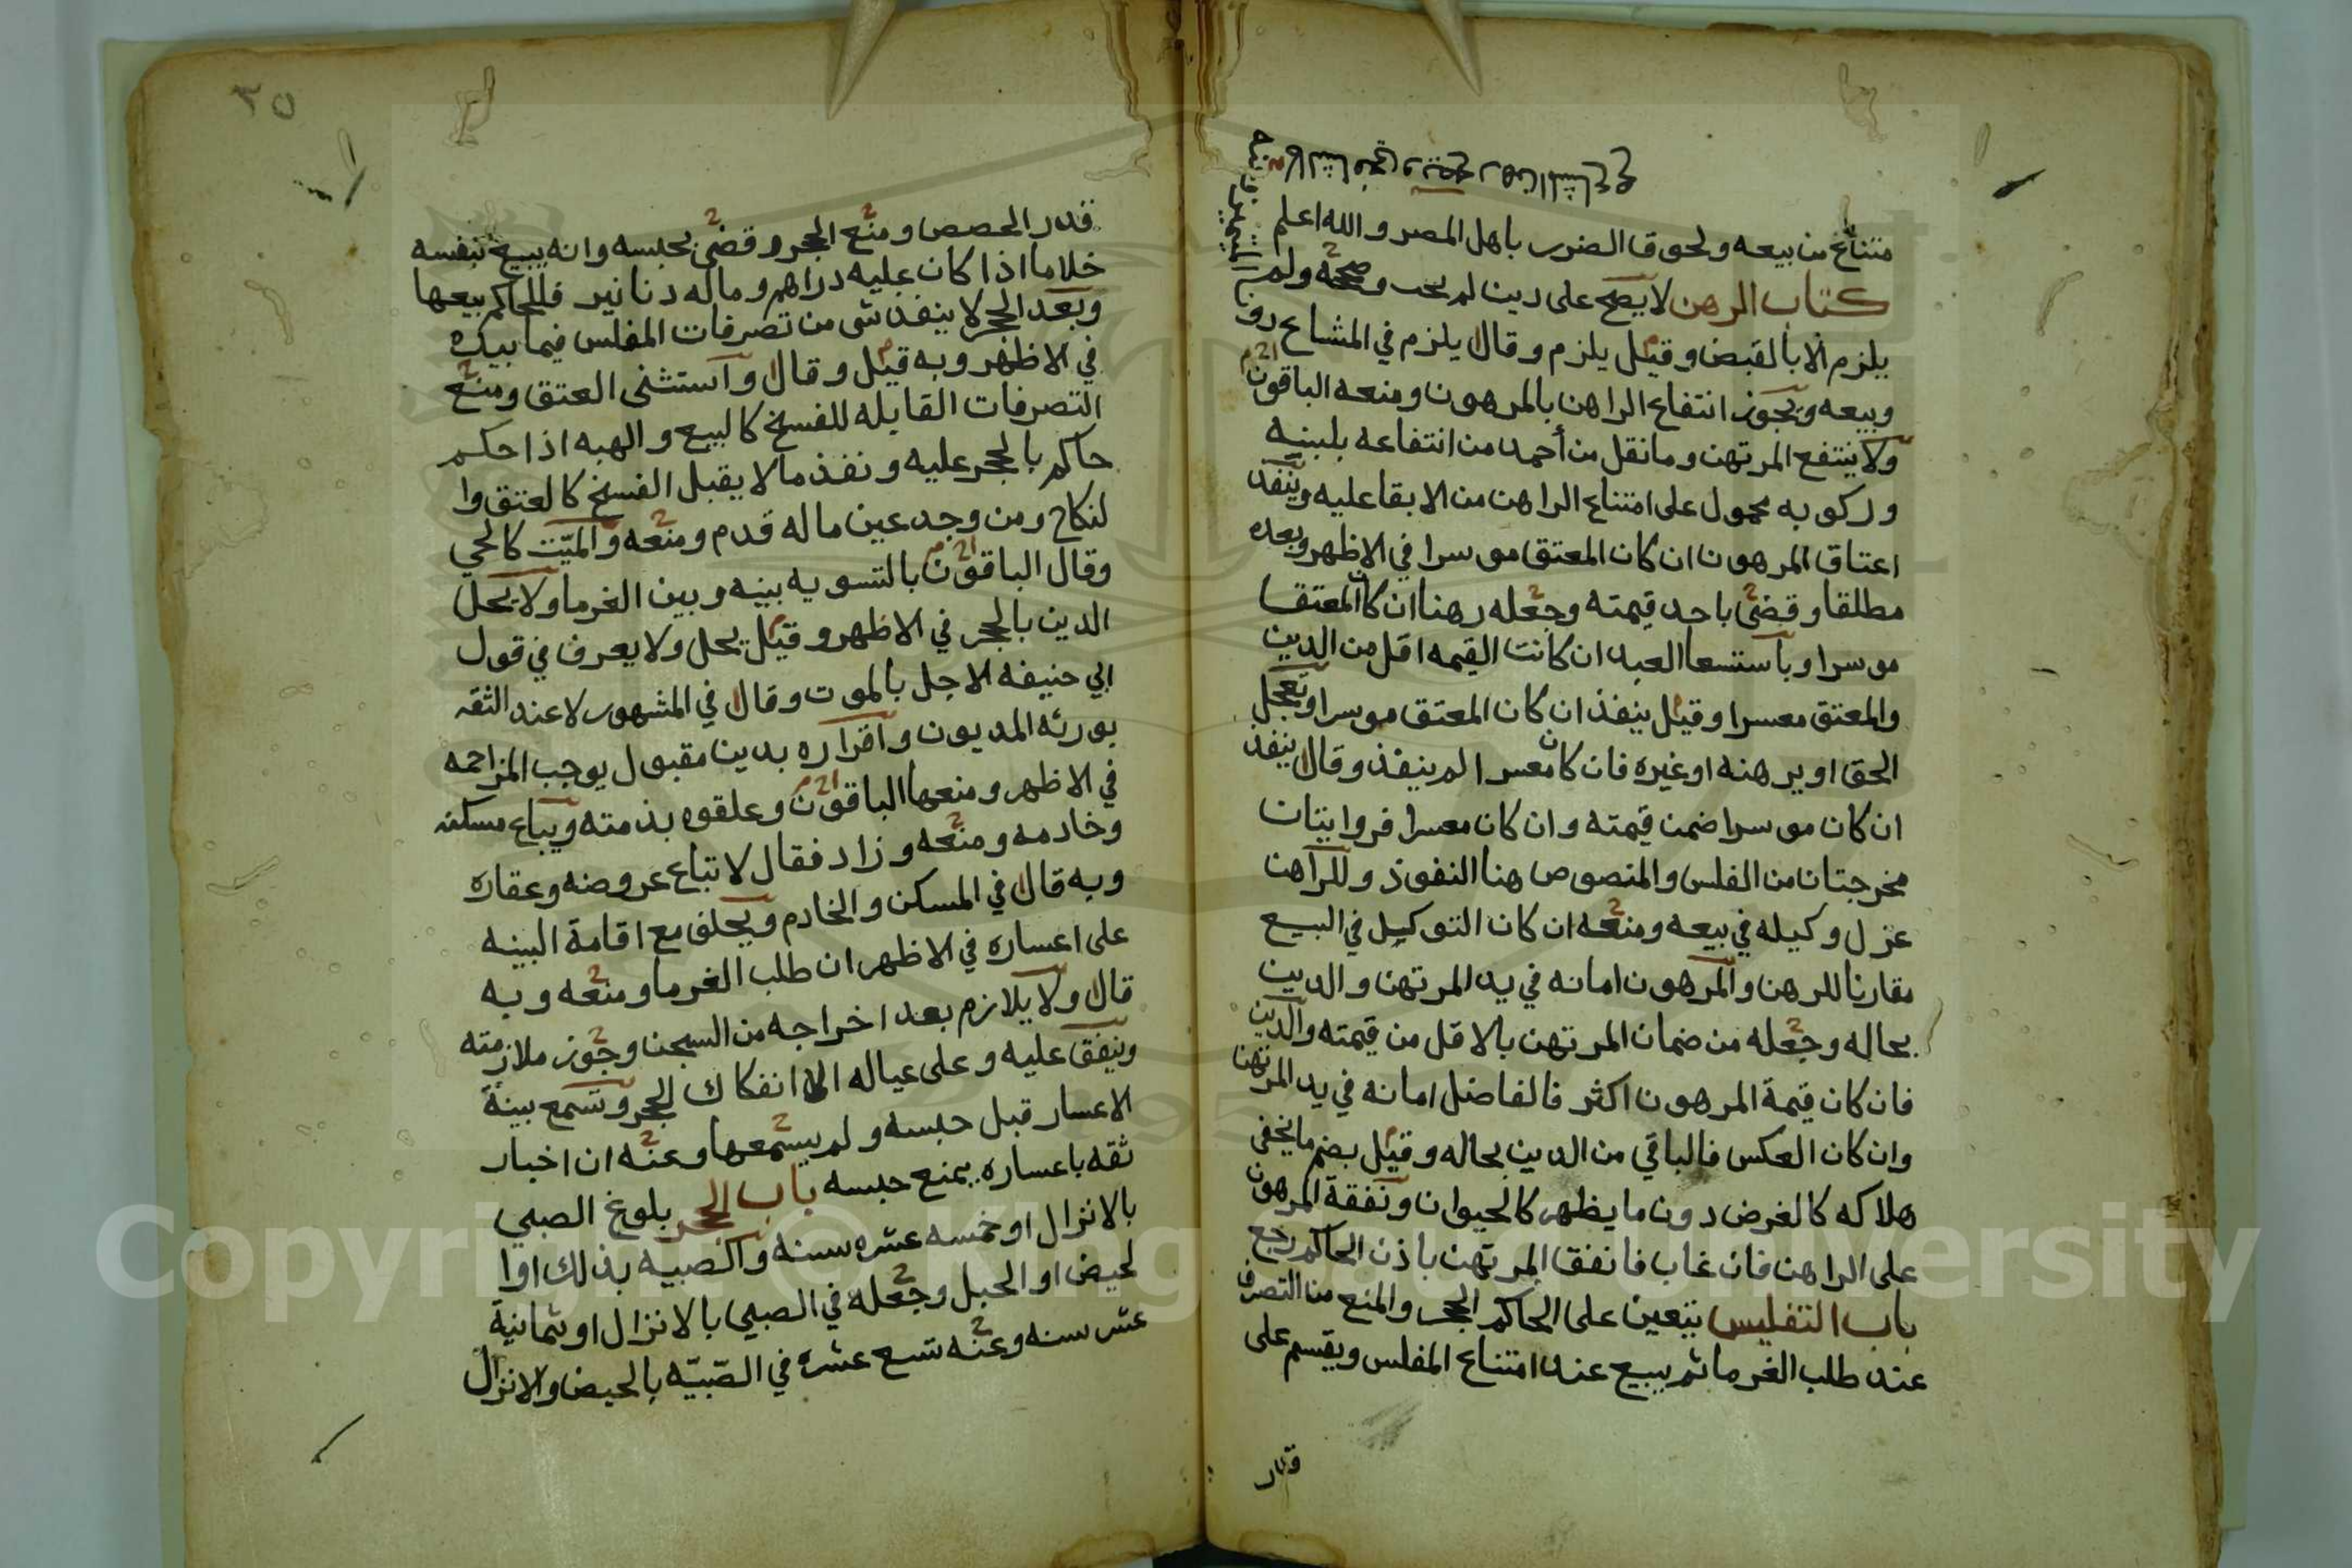 ممتناع من بيعه ولحوق الضرر باهل المصر والله اعلم
كتاب الرهن لا يصح على دين لم يجب وصححه ولم
يلزم الا بالقبض وقيل يلزم وقال يلزم في المشاع
وبيعه ويجوز انتفاع الراهن بالمرهون ومنعه الباقون
ولا ينتفع المرتهن وما نقل من أحمد من انتفاعه بلبنه
وركوبه محمول على امتناع الراهن من الابقا عليه وينفد
اعتاق المرهون ان كان المعتق موسرا في الاظهر وبعده
مطلقا وقضى باحد قيمته وجعله رهنا ان كان المعتق
موسرا وباستسعا العبد ان كانت القيمه اقل من الدين
والمعتق معسرا وقيل ينفذ ان كان المعتق موسرا ويعجل
الحق او يرهنه او غيره فان كان معسرا لم ينفذ وقال ينفذ
ان كان موسرا ضمن قيمته وان كان معسرا فروايتان
مخرجتان من الفلس والمنصوص هنا النفوذ وللراهن
عزل وكيله في بيعه ومنعه ان كان التوكيل في البيع
مقارنا للرهن والمرهون امانه في يد المرتهن والدين
بحاله وجعله من ضمان المرتهن بالاقل من قيمته والدين
فان كان قيمة المرهون اكثر فالفاضل امانه في يد المرتهن
وان كان العكس فالباقي من الدين بحاله وقيل بضم ما يخفى
هلاكه كالغرض دون ما يظهر كالحيوان ونفقة المرهون
على الراهن فان غاب فانفق المرتهن باذن الحاكم رجع
باب التفليس يتعين على الحاكم الحجر والمنع من التصرف
عند طلب الغرما ثم يبيع عند امتناع المفلس ويقسم على
قدر
٣٥
قدر الحصص ومنع الحجر وقضى بحبسه وانه يبيع بنفسه
خلاما اذا كان عليه دراهم وماله دنانير فللحاكم بيعها
وبعد الحجر لا ينفد شى من تصرفات المفلس فيما بيده
في الاظهر وبه قيل وقال واستثنى العتق ومنع
التصرفات القابله للفسخ كالبيع والهبه اذا حكم
حاكم بالحجر عليه ونفذ ما لا يقبل الفسخ كالعتق وا
لنكاح ومن وجد عين ماله قدم ومنعه والميت كالحي
وقال الباقون بالتسويه بينه وبين الغرما ولا يحل
الدين بالحجر في الاظهر وقيل يحل ولا يعرف في قول
ابي حنيفه الاجل بالموت وقال في المشهور لا عند الثقه
بورثه المديون واقراره بدين مقبول يوجب المزاحمه
في الاظهر ومنعها الباقون وعلقوه بذمته ويباع مسكنه
وخادمه ومنعه وزاد فقال لا تباع عروضه وعقاره
وبه قال في المسكن والخادم ويحلف مع اقامة البينه
على اعساره في الاظهر ان طلب الغرما ومنعه وبه
قال ولا يلازم بعد اخراجه من السجن وجوز ملازمته
وينفق عليه وعلى عياله الى انفكاك الحجر وتسمع بينة
الاعسار قبل حبسه ولم يسمعها وعنه ان اخبار
ثقه باعساره يمنع حبسه باب الحجر بلوغ الصبي
بالانزال او خمسه عشره سنه والصبيه بذلك او ا
لحيض او الحبل وجعله في الصبي بالانزال او ثمانية
عشر سنه وعنه تسع عشره في الصّبيّه بالحيض والانزال
Copyright © King Saud University